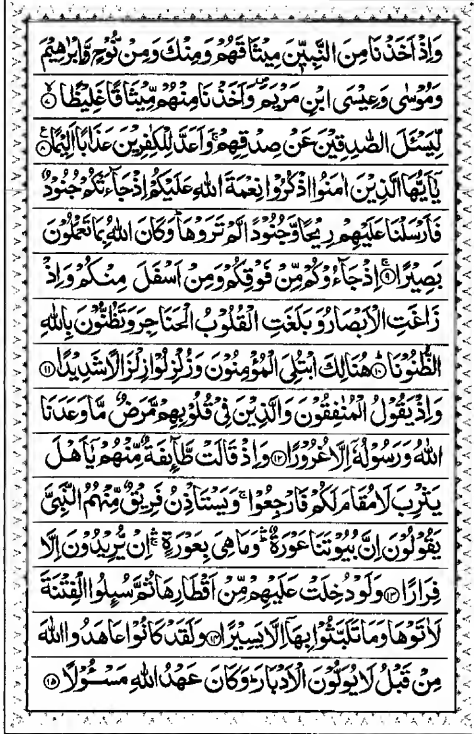 وَاِذْ اَخَذْنَا مِنَ النَّبِيّٖنَ مِيْثَاقَهُمْ وَمِنْكَ وَمِنْ نُّوْحٍ وَّاِبْرٰهِيْمَ
وَمُوْسٰى وَعِيْسَى ابْنِ مَرْيَمَ ۪ وَاَخَذْنَا مِنْهُمْ مِّيْثَاقًا غَلِيْظًا ۙ۷
لِّيَسْـَٔلَ الصّٰدِقِيْنَ عَنْ صِدْقِهِمْ ۚ وَاَعَدَّ لِلْكٰفِرِيْنَ عَذَابًا اَلِيْمًا ۸
يٰۤاَيُّهَا الَّذِيْنَ اٰمَنُوا اذْكُرُوْا نِعْمَةَ اللّٰهِ عَلَيْكُمْ اِذْ جَآءَتْكُمْ جُنُوْدٌ
فَاَرْسَلْنَا عَلَيْهِمْ رِيْحًا وَّجُنُوْدًا لَّمْ تَرَوْهَا ؕ وَكَانَ اللّٰهُ بِمَا تَعْمَلُوْنَ
بَصِيْرًا ۚ۹ اِذْ جَآءُوْكُمْ مِّنْ فَوْقِكُمْ وَمِنْ اَسْفَلَ مِنْكُمْ وَاِذْ
زَاغَتِ الْاَبْصَارُ وَبَلَغَتِ الْقُلُوْبُ الْحَنَاجِرَ وَتَظُنُّوْنَ بِاللّٰهِ
الظُّنُوْنَا ۱۰ هُنَالِكَ ابْتُلِيَ الْمُؤْمِنُوْنَ وَزُلْزِلُوْا زِلْزَالًا شَدِيْدًا ۱۱
وَاِذْ يَقُوْلُ الْمُنٰفِقُوْنَ وَالَّذِيْنَ فِيْ قُلُوْبِهِمْ مَّرَضٌ مَّا وَعَدَنَا
اللّٰهُ وَرَسُوْلُهٗۤ اِلَّا غُرُوْرًا ۱۲ وَاِذْ قَالَتْ طَّآئِفَةٌ مِّنْهُمْ يٰۤاَهْلَ
يَثْرِبَ لَا مُقَامَ لَكُمْ فَارْجِعُوْا ۚ وَيَسْتَاْذِنُ فَرِيْقٌ مِّنْهُمُ النَّبِيَّ
يَقُوْلُوْنَ اِنَّ بُيُوْتَنَا عَوْرَةٌ ؕۛ وَمَا هِيَ بِعَوْرَةٍ ۚۛ اِنْ يُّرِيْدُوْنَ اِلَّا
فِرَارًا ۱۳ وَلَوْ دُخِلَتْ عَلَيْهِمْ مِّنْ اَقْطَارِهَا ثُمَّ سُىِٕلُوا الْفِتْنَةَ
لَاٰتَوْهَا وَمَا تَلَبَّثُوْا بِهَاۤ اِلَّا يَسِيْرًا ۱۴ وَلَقَدْ كَانُوْا عَاهَدُوا اللّٰهَ
مِنْ قَبْلُ لَا يُوَلُّوْنَ الْاَدْبَارَ ؕ وَكَانَ عَهْدُ اللّٰهِ مَسْـُٔوْلًا ۱۵